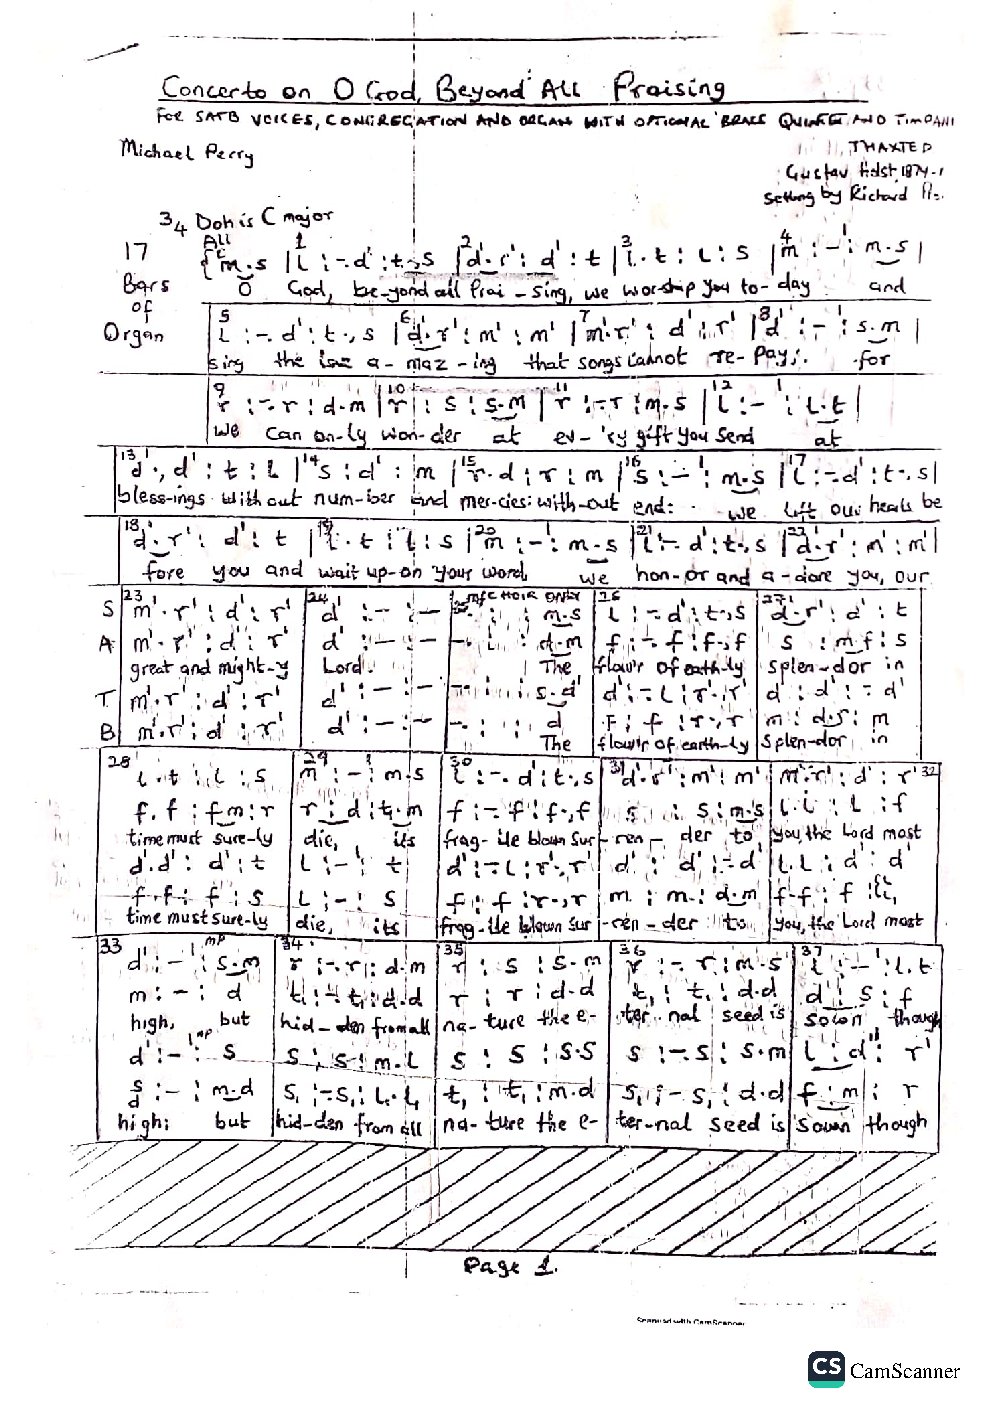 Concerto on O God, Beyond All Praising
FOR SATB VOICES, CONGREGATION AND ORGAN WITH OPTIONAL BRASS AND TIMPANI
Michael Perry
THAXTED
Gustav Holst, 1874-1
Setting by Richard
3/4 Doh is C major
17 Bars of Organ
All
m.s | l : -.d' : t.,s | d'.r' : d' : t | l.t : l : s | m : - : m.s |
O God, be-yond all Prai-sing, we worship you to-day and
l : -. d' : t.,s | d'.r' : m' : m' | m'.r' : d' : r' | d' : - : s.m |
sing the a-maz-ing that songs cannot re-pay; for
r : -.r : d.m | r : s : s.m | r : -.r : m.s | l : - : l.t |
We Can on-ly won-der at ev-'ry gift you Send at
d'., d' : t : l | s : d' : m | r.d : r : m | s : - : m.s | l : -.d' : t.,s |
bless-ings without num-ber and mer-cies with-out end: we lift our hearts be
d'.r' : d' : t | l.t : l : s | m : - : m.s | l : -. d' : t.,s | d'.r' : m' : m' |
fore you and wait up-on your word, we hon-or and a-dore you, our
23 24 25 CHOIR ONLY 26 27
S m'.r' : d' : r' d' : - : - m.s l : -.d' : t.,s d'.r' : d' : t
A m'.r' : d' : r' d' : - : - d.m f : -.f : f.,f s : m.f : s
great and might-y Lord. The flow'r of earth-ly splen-dor in
T m'.r' : d' : r' d' : - : - s.d' d' : -.l : r'.,r' d' : d' : - d'
B m'.r' : d' : r' d' : - : - d f : f : r.,r m : d.s : m
The flow'r of earth-ly splen-dor in
28 29 30 31 32
l.t : l : s m : - : m.s l : -. d' : t.,s d'.r' : m' : m' m'.r' : d' : r'
f.f : f.m : r r : d : t.m f : -.f : f.,f s : s : m.s l.l : l : f
time must sure-ly die, its frag-ile bloom sur-ren-der to you, the Lord most
d'.d' : d' : t l : - : t d' : -.l : r'.,r' d' : d' : - d l.l : d' : d'
f.f : f : s l : - : s f : f : r.,r m : m : d.m f.f : f
time must sure-ly die, its frag-ile bloom sur-ren-der to you, the Lord most
33 mp 34 35 36 37
d' : - : s.m r : -.r : d.m r : s : s.m r : -. r : m.s l : - : l.t
m : - : d t, : -.t, : d.d r : r : d.d t, : t, : d.d d : s : f
high, but hid-den from all na-ture the e-ter-nal seed is sown though
d' : - : s s : s : m.l s : s : s.s s : -.s : s.m l : d' : r'
s d : - : m.d s, : -.s, : l,.l, t, : t, : m.d s, : -.s, : d.d f : m : r
high; but hid-den from all na-ture the e-ter-nal seed is sown though
Page 1.
Scanned with CamScanner
CS CamScanner